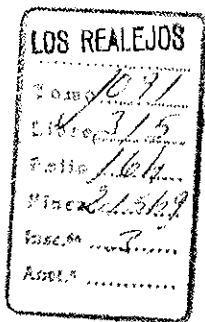 LOS REALEJOS
Tomo 1091
Libro 315
Folio 161
Finca
Insc.ª 3
Anot.ª